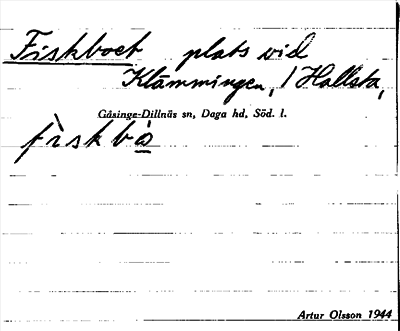 Fiskboet plats vid
Klämmingen, / Hallsta,
Gåsinge-Dillnäs sn, Daga hd, Söd. l.
fìskbo̲
Artur Olsson 1944